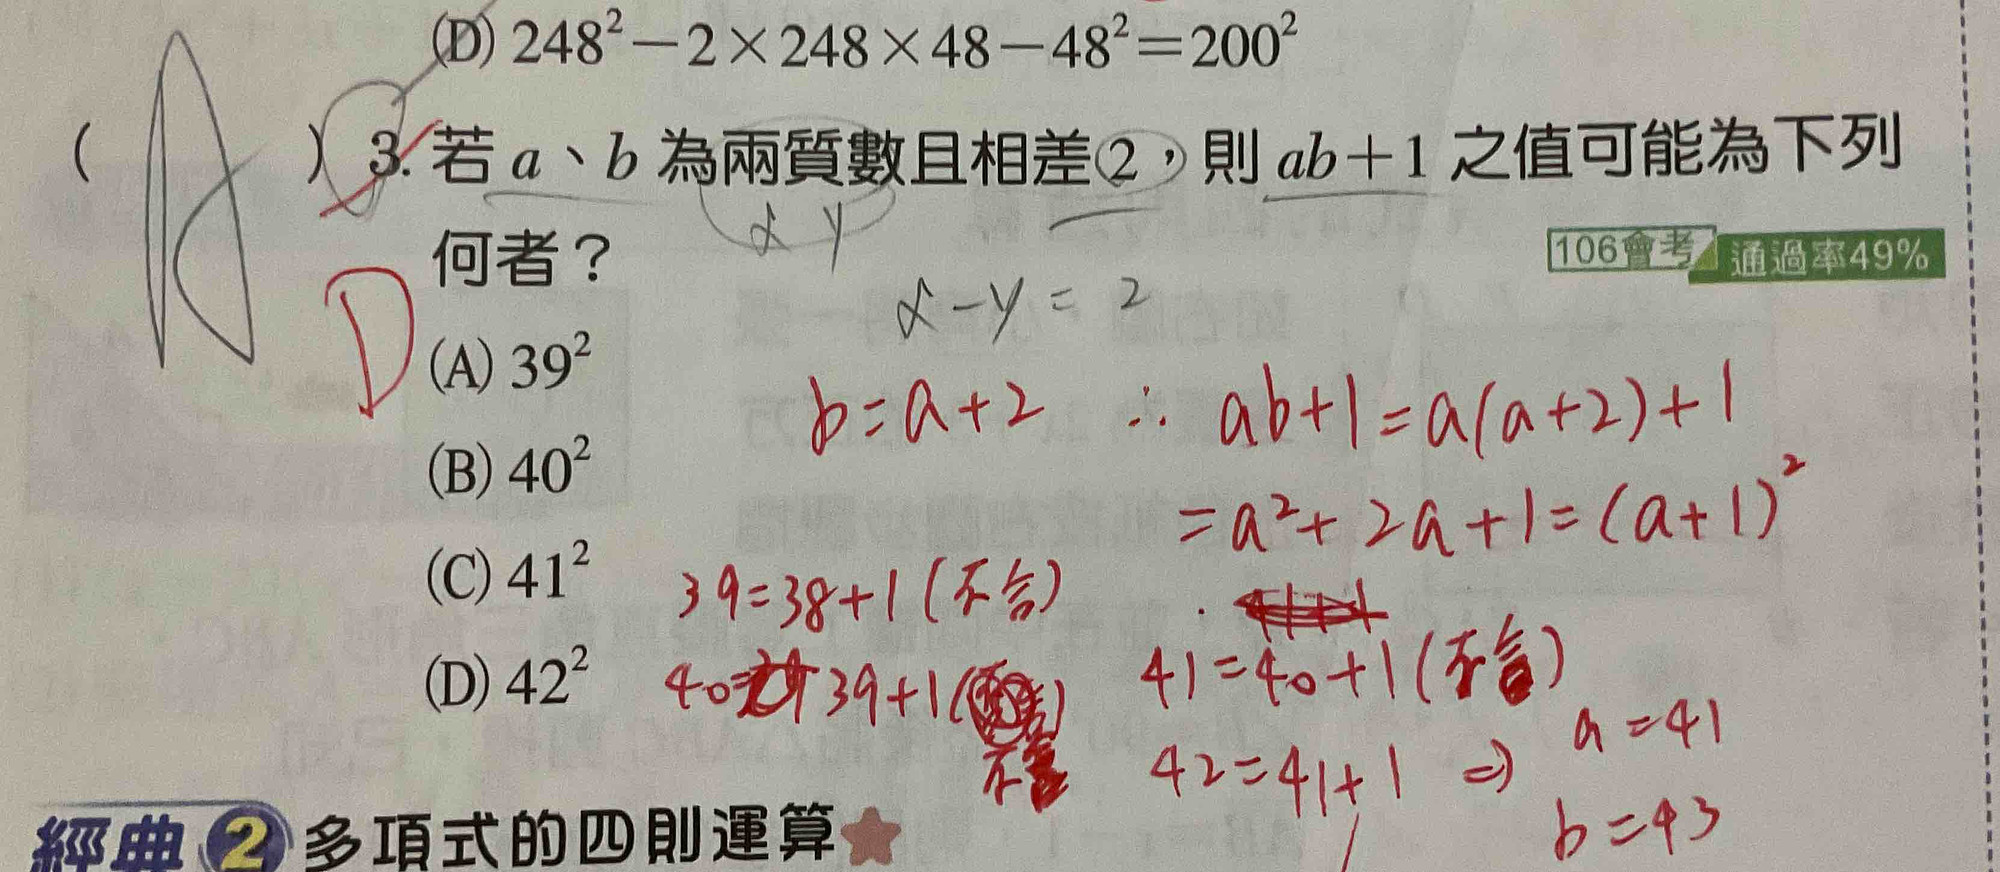 (D) 248²－2×248×48－48²＝200²
( A ) 3. 若 a、b 為兩質數且相差2，則 ab＋1 之值可能為下列
何者？
106會考 通過率49%
x y
x－y＝2
D
(A) 39²
(B) 40²
(C) 41²
(D) 42²
b＝a＋2 ∴ ab＋1＝a(a＋2)＋1
＝a²＋2a＋1＝(a＋1)²
39＝38＋1(不合)
40＝39＋1(不合)
41＝40＋1(不合)
42＝41＋1 ⇒ a＝41
b＝43
經典 2 多項式的四則運算